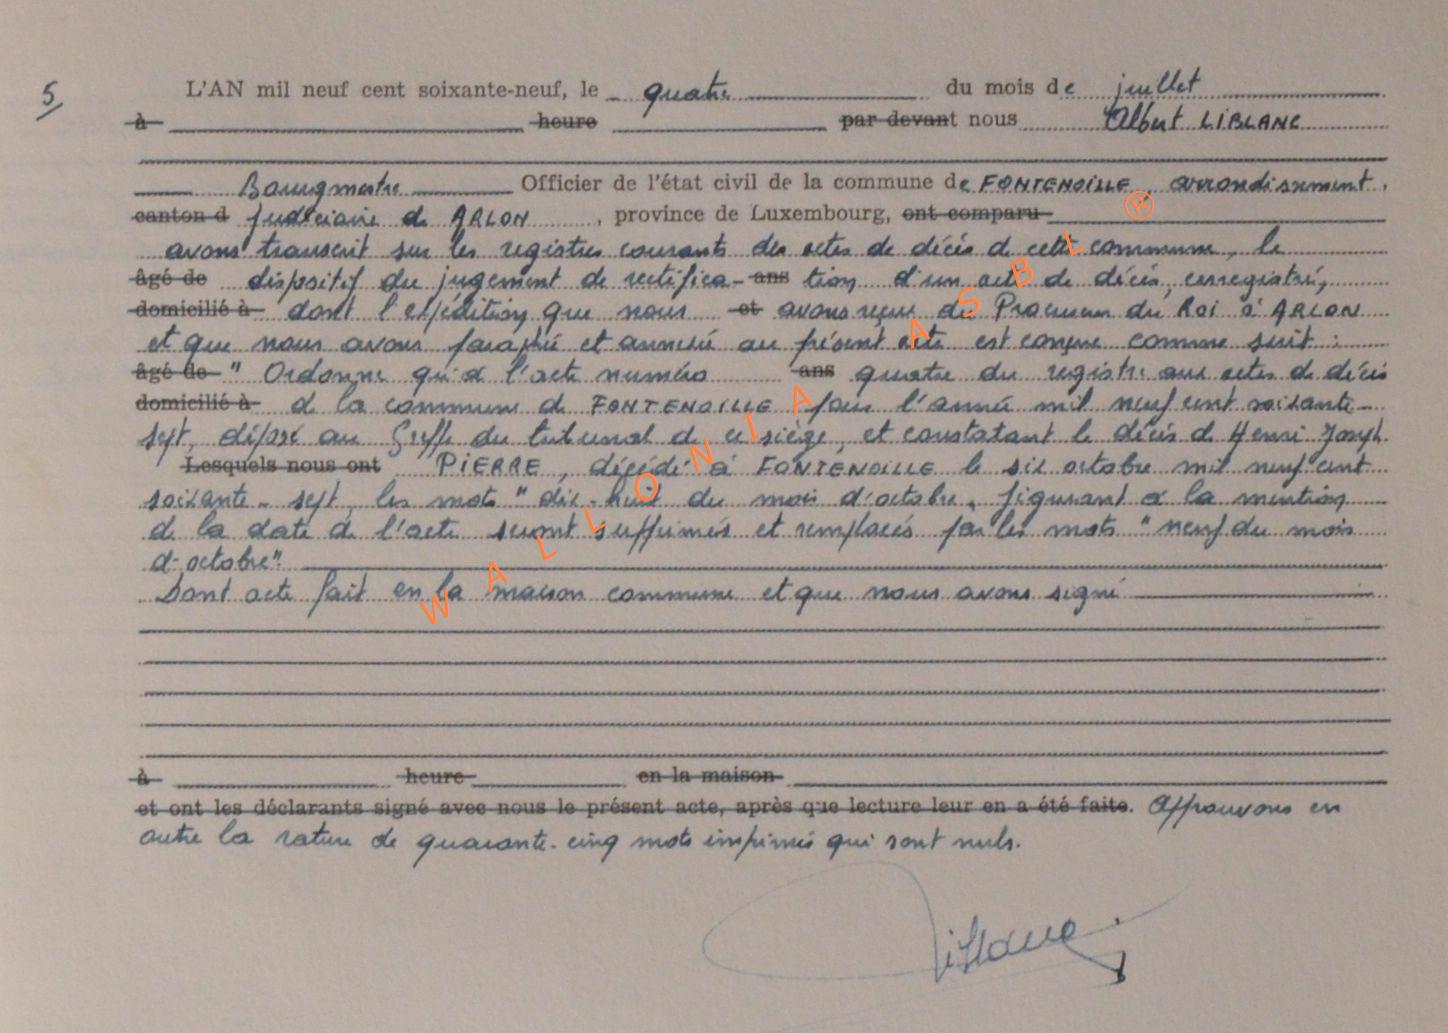 5/
L'AN mil neuf cent soixante-neuf, le quatre du mois de juillet
à heure par devant nous Albert LIBLANC
Bourgmestre Officier de l'état civil de la commune de FONTENOILLE, arrondissement,
canton d judiciaire de ARLON, province de Luxembourg, ont comparu
avons transcrit sur les registres courants des actes de décès de cette commune, le
âgé de dispositif du jugement de rectifica- ans tion d'un acte de décès, enregistré,
domicilié à dont l'expédition que nous et avons reçue du Procureur du Roi à ARLON
et que nous avons paraphé et annexé au présent acte est conçue comme suit :
âgé de " Ordonne qu'à l'acte numéro ans quatre du registre aux actes de décès
domicilié à de la commune de FONTENOILLE pour l'année mil neuf cent soixante-
sept, déposé au Greffe du tribunal de ce siège, et constatant le décès de Henri Joseph
Lesquels nous ont PIERRE, décédé à FONTENOILLE le six octobre mil neuf cent
soixante-sept, les mots "dix-huit du mois d'octobre, figurant à la mention
de la date de l'acte seront supprimés et remplacés par les mots "neuf du mois
d'octobre".
Dont acte fait en la maison commune et que nous avons signé
à heure en la maison
et ont les déclarants signé avec nous le présent acte, après que lecture leur en a été faite. Approuvons en
outre la rature de quarante-cinq mots imprimés qui sont nuls.
Liblanc
WALLONIA ASBL ®